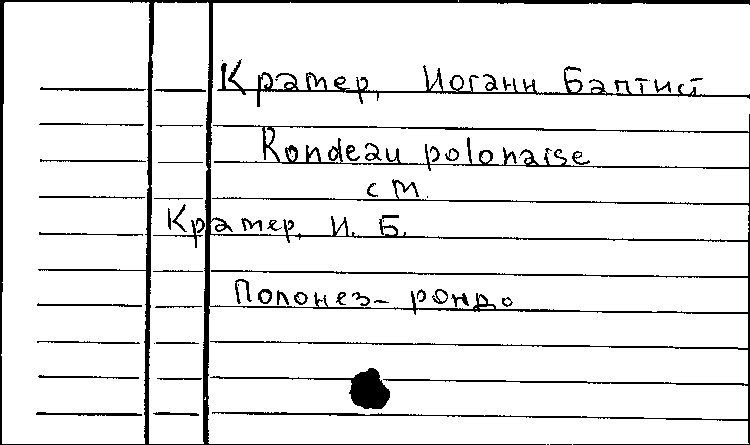 Крамер, Иоганн Баптист
Rondeau polonaise
см
Крамер, И. Б.
Полонез- рондо